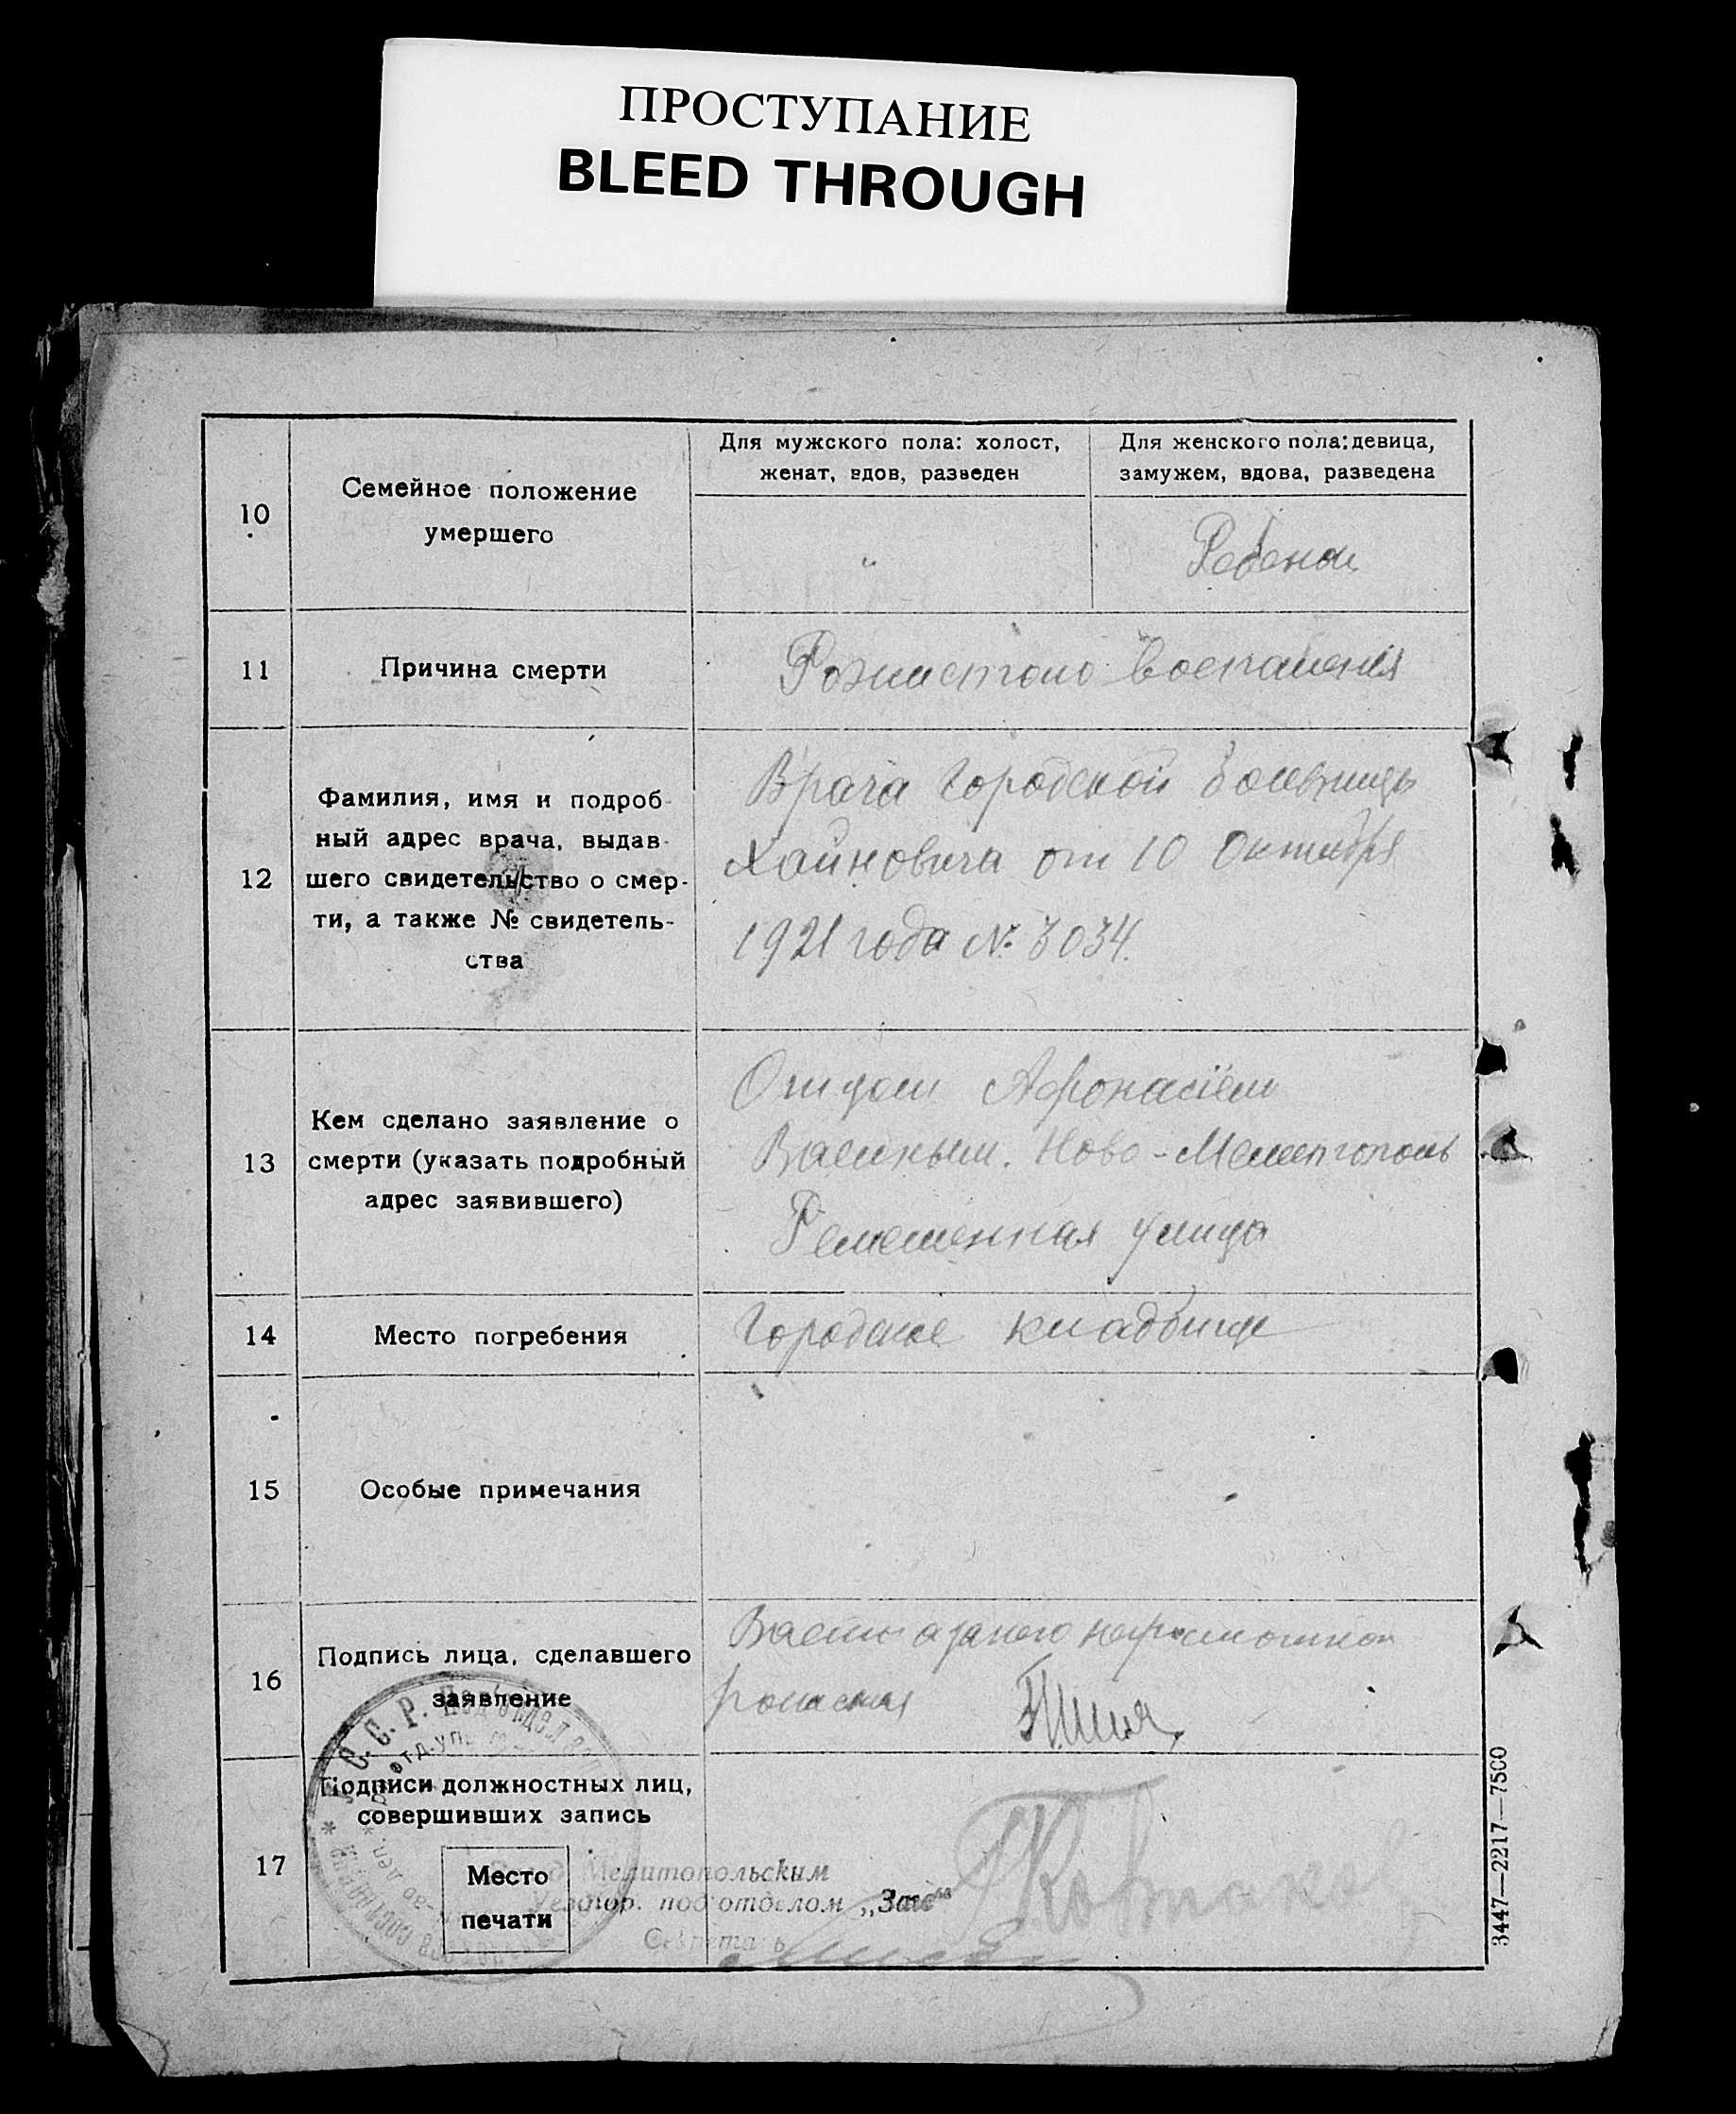 ПРОСТУПАНИЕ
BLEED THROUGH
10
Семейное положение
умершего
Для мужского пола: холост,
женат, вдов, разведен
Для женского пола: девица,
замужем, вдова, разведена
"
Ребенок
11
Причина смерти
Рожистого воспаления
12
Фамилия, имя и подроб-
ный адрес врача, выдав-
шего свидетельство о смер-
ти, а также № свидетель-
ства
Врача Городской больницы
Хайновича от 10 Октября
1921 года № 3034.
13
Кем сделано заявление о
смерти (указать подробный
адрес заявившего)
Отцом Афонасіем
Ново-Мелитополь
улица
14
Место погребения
Городское кладбище
15
Особые примечания
16
Подпись лица, сделавшего
заявление
17
Подписи должностных лиц,
совершивших запись
Место
печати
С. С. Р. Под'отдел
отд. упр.
Мелитопольским
под'отделом „Загс"
Секретарь
3447—2217—7500